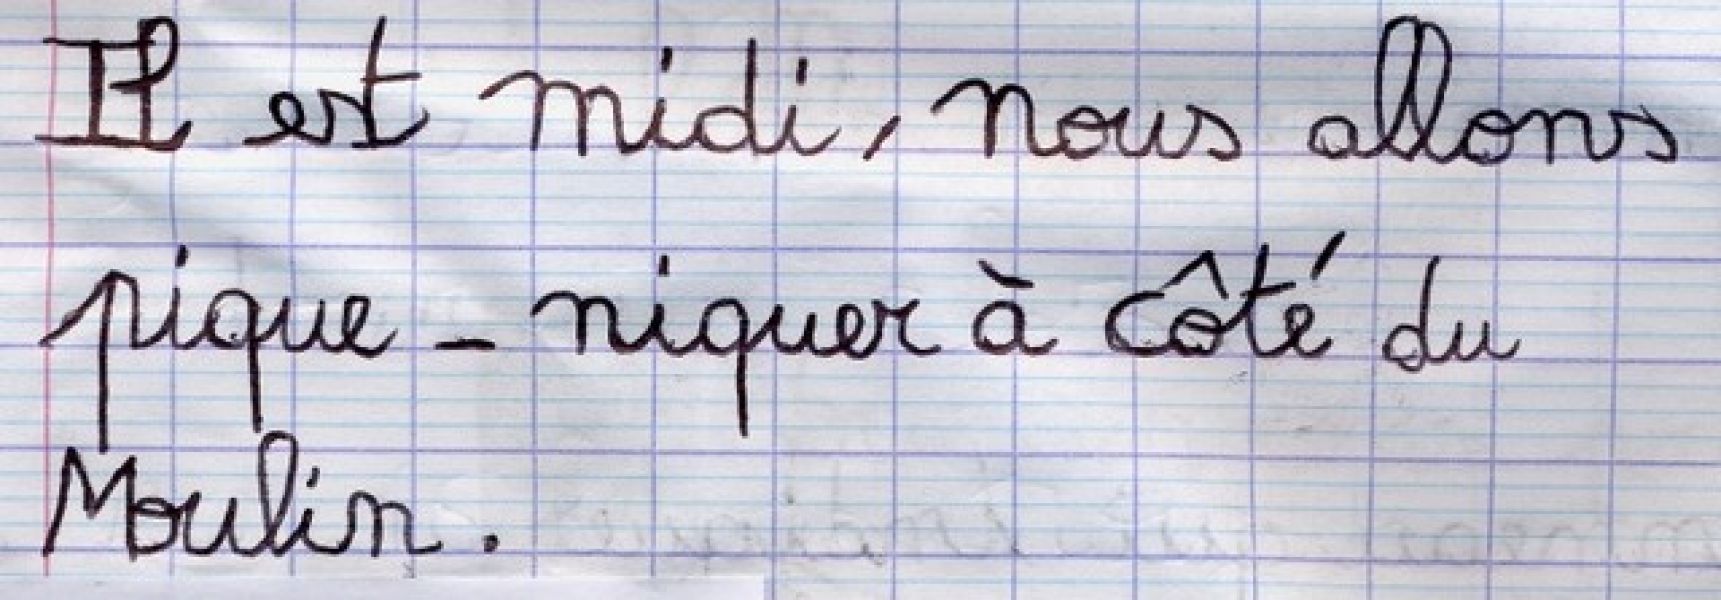 Il est midi, nous allons
pique-niquer à côté du
Moulin.